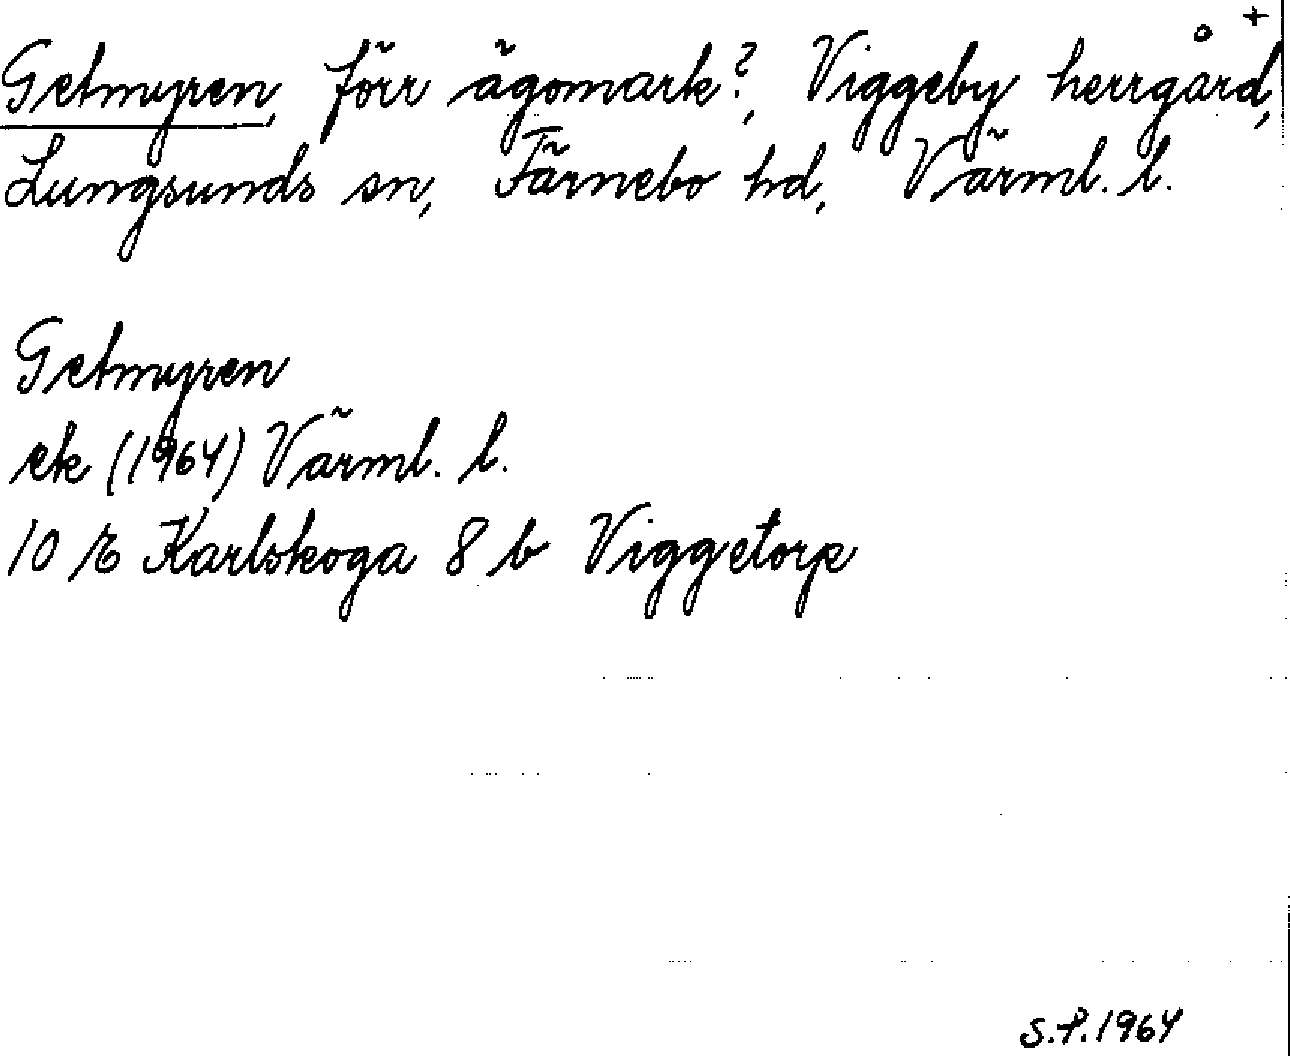 +
Getmyren, förr ägomark?, Viggeby herrgård,
Lungsunds sn, Färnebo hd, Värml. l.
Getmyren
ek (1964) Värml. l.
10 E Karlskoga 8 b Viggetorp
S.P. 1964